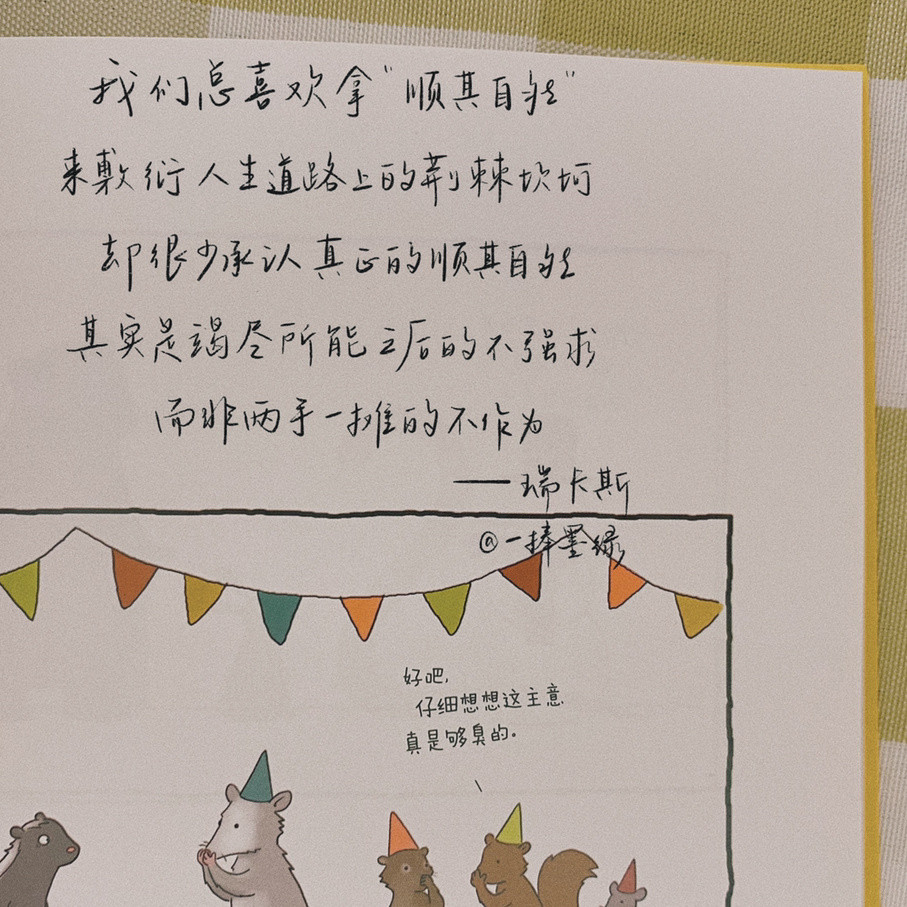 我们总喜欢拿“顺其自然”
来敷衍人生道路上的荆棘坎坷
却很少承认真正的顺其自然
其实是竭尽所能之后的不强求
而非两手一摊的不作为
——瑞卡斯
@一捧墨绿
好吧,
仔细想想这主意
真是够臭的。